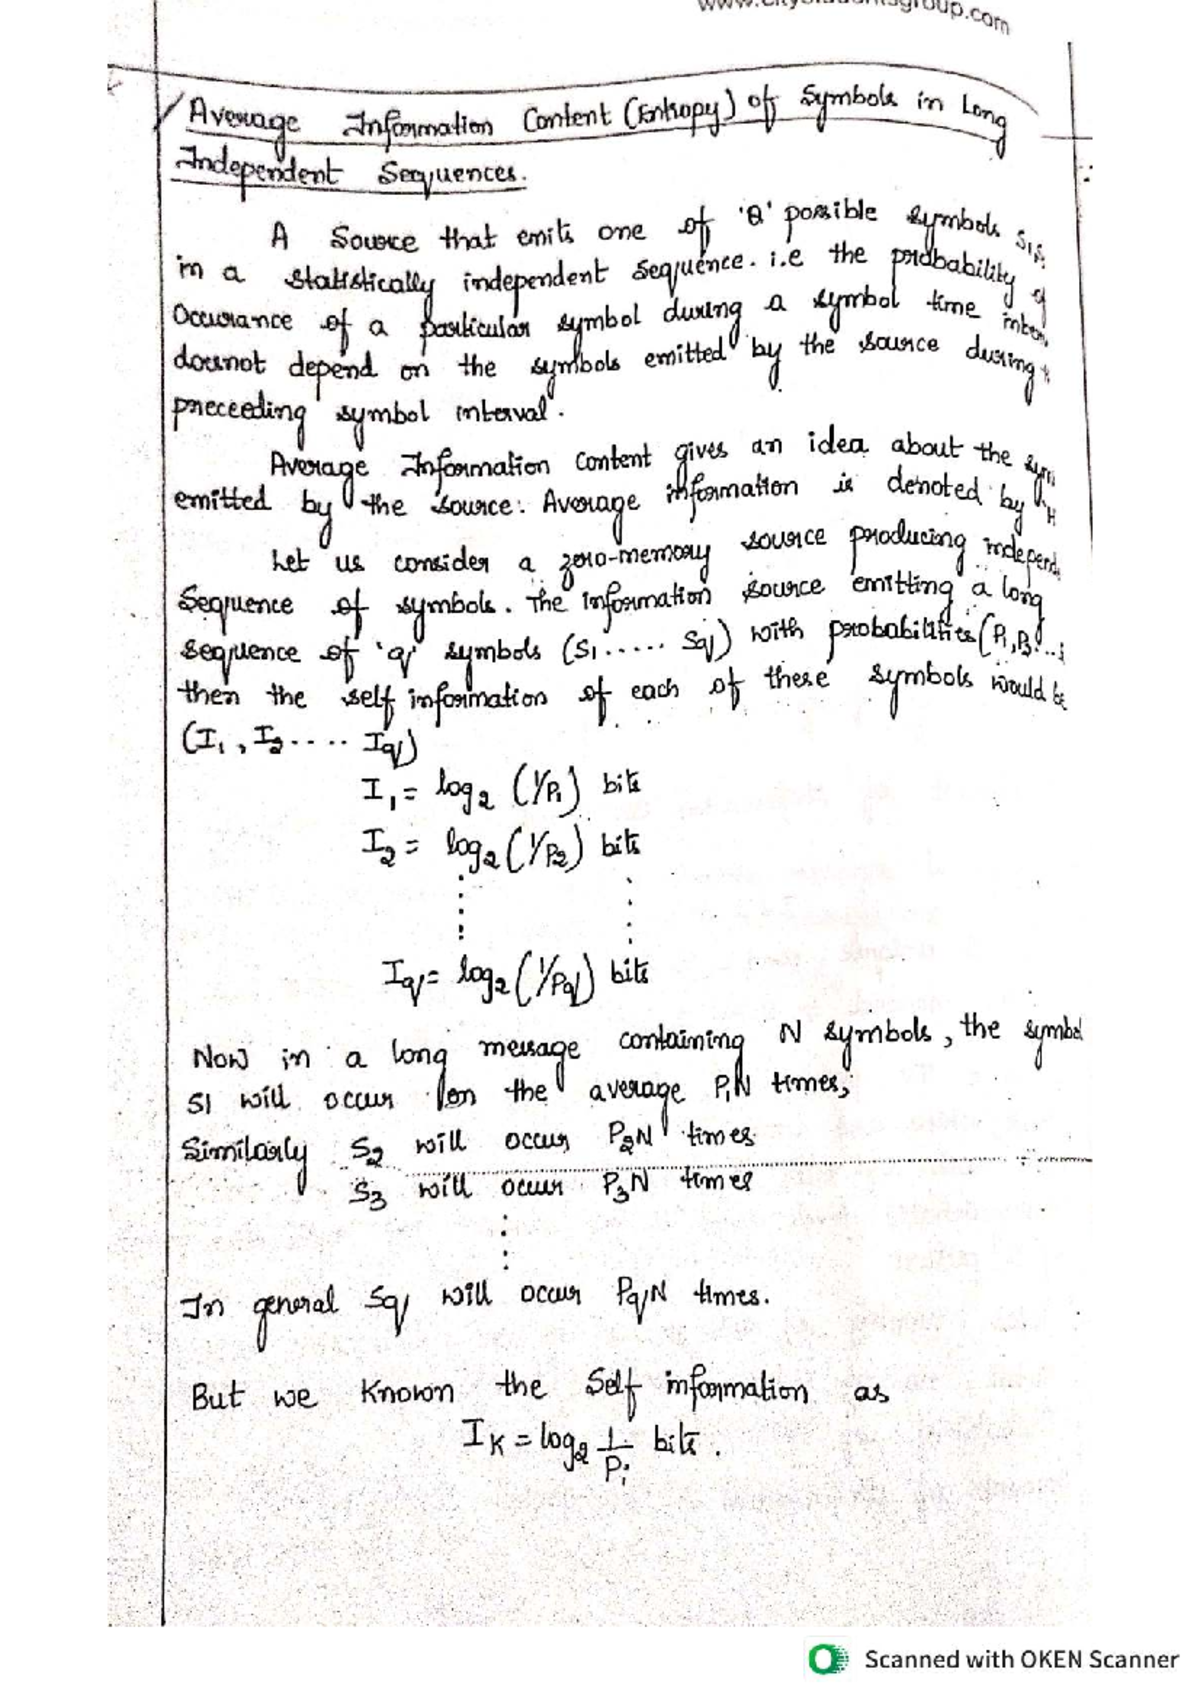 Average Information Content (Entropy) of Symbols in Long
Independent Sequences.
A Source that emits one of 'Q' possible symbols S1,S
in a statistically independent sequence. i.e the probability of
Occurance of a particular symbol during a symbol time
doesnot depend on the symbols emitted by the source during
preceeding symbol interval.
Average Information Content gives an idea about the
emitted by the source. Average information is denoted by 'H
Let us consider a zero-memory source producing independ
Sequence of symbols. The information source emitting a long
sequence of 'q' symbols (S1..... Sq) with probabilities (P1,P2...
then the self information of each of these symbols would be
(I1, I2..... Iq)
I1 = log2 (1/P1) bits
I2 = log2 (1/P2) bits
Iq = log2 (1/Pq) bits
Now in a long message containing N symbols, the symbol
S1 will occur on the average P1N times,
Similarly S2 will occur P2N times
S3 will occur P3N times
In general Sq will occur PqN times.
But we known the Self information as
IK = log2 1/Pi bits.
Scanned with OKEN Scanner